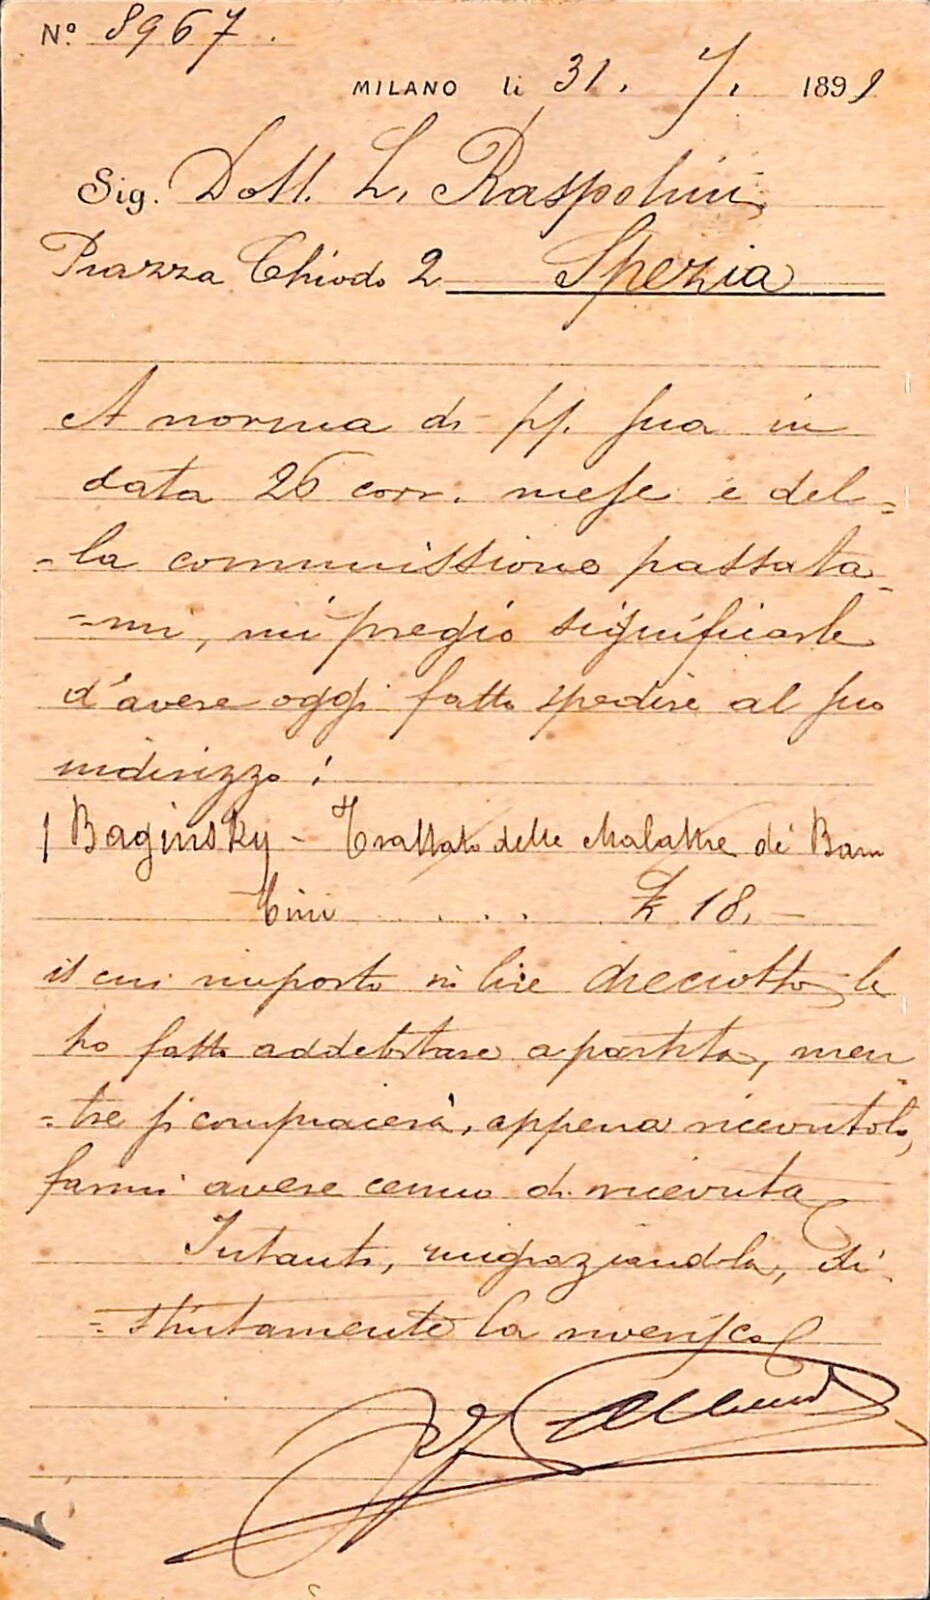 N° 8967.
MILANO li 31. 7. 1899
Sig. Dott. L. Raspolini
Piazza Chiodo 2 Spezia
A norma di pp. sua in
data 26 corr. mese e del=
=la commissione passata=
=mi, mi pregio significarle
d'avere oggi fatto spedire al suo
indirizzo:
1 Baginsky - Trattato delle Malattie di Bam
bini . . . . £ 18,-
il cui importo in lire dieciotto le
ho fatto addebitare a partita, men=
=tre si compiacerà, appena ricevutolo,
farmi avere cenno di ricevuta
Intanto, ringraziandola, di=
=stintamente la riverisco